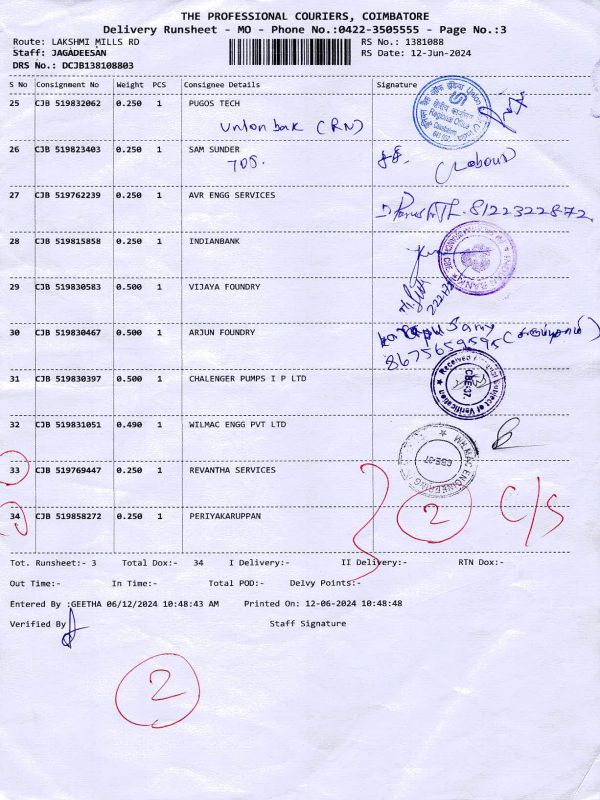 THE PROFESSIONAL COURIERS, COIMBATORE
Delivery Runsheet - MO - Phone No.:0422-3505555 - Page No.:3
Route: LAKSHMI MILLS RD
RS No.: 1381088
Staff: JAGADEESAN
RS Date: 12-Jun-2024
DRS No.: DCJB138108803
S No Consignment No Weight PCS Consignee Details Signature
25 CJB 519832062 0.250 1 PUGOS TECH
Union bak (RN)
Regional Office
26 CJB 519823403 0.250 1 SAM SUNDER
TDS.
(Labour)
27 CJB 519762239 0.250 1 AVR ENGG SERVICES
8122322872
28 CJB 519815858 0.250 1 INDIANBANK
29 CJB 519830583 0.500 1 VIJAYA FOUNDRY
30 CJB 519830467 0.500 1 ARJUN FOUNDRY
8675659595
31 CJB 519830397 0.500 1 CHALENGER PUMPS I P LTD
Received
Subject of Verification
CBE-37.
32 CJB 519831051 0.490 1 WILMAC ENGG PVT LTD
WILMAC ENGINEERING
CBE-37
33 CJB 519769447 0.250 1 REVANTHA SERVICES
34 CJB 519858272 0.250 1 PERIYAKARUPPAN
2 C/S
Tot. Runsheet:- 3 Total Dox:- 34 I Delivery:- II Delivery:- RTN Dox:-
Out Time:- In Time:- Total POD:- Delvy Points:-
Entered By :GEETHA 06/12/2024 10:48:43 AM Printed On: 12-06-2024 10:48:48
Verified By Staff Signature
2